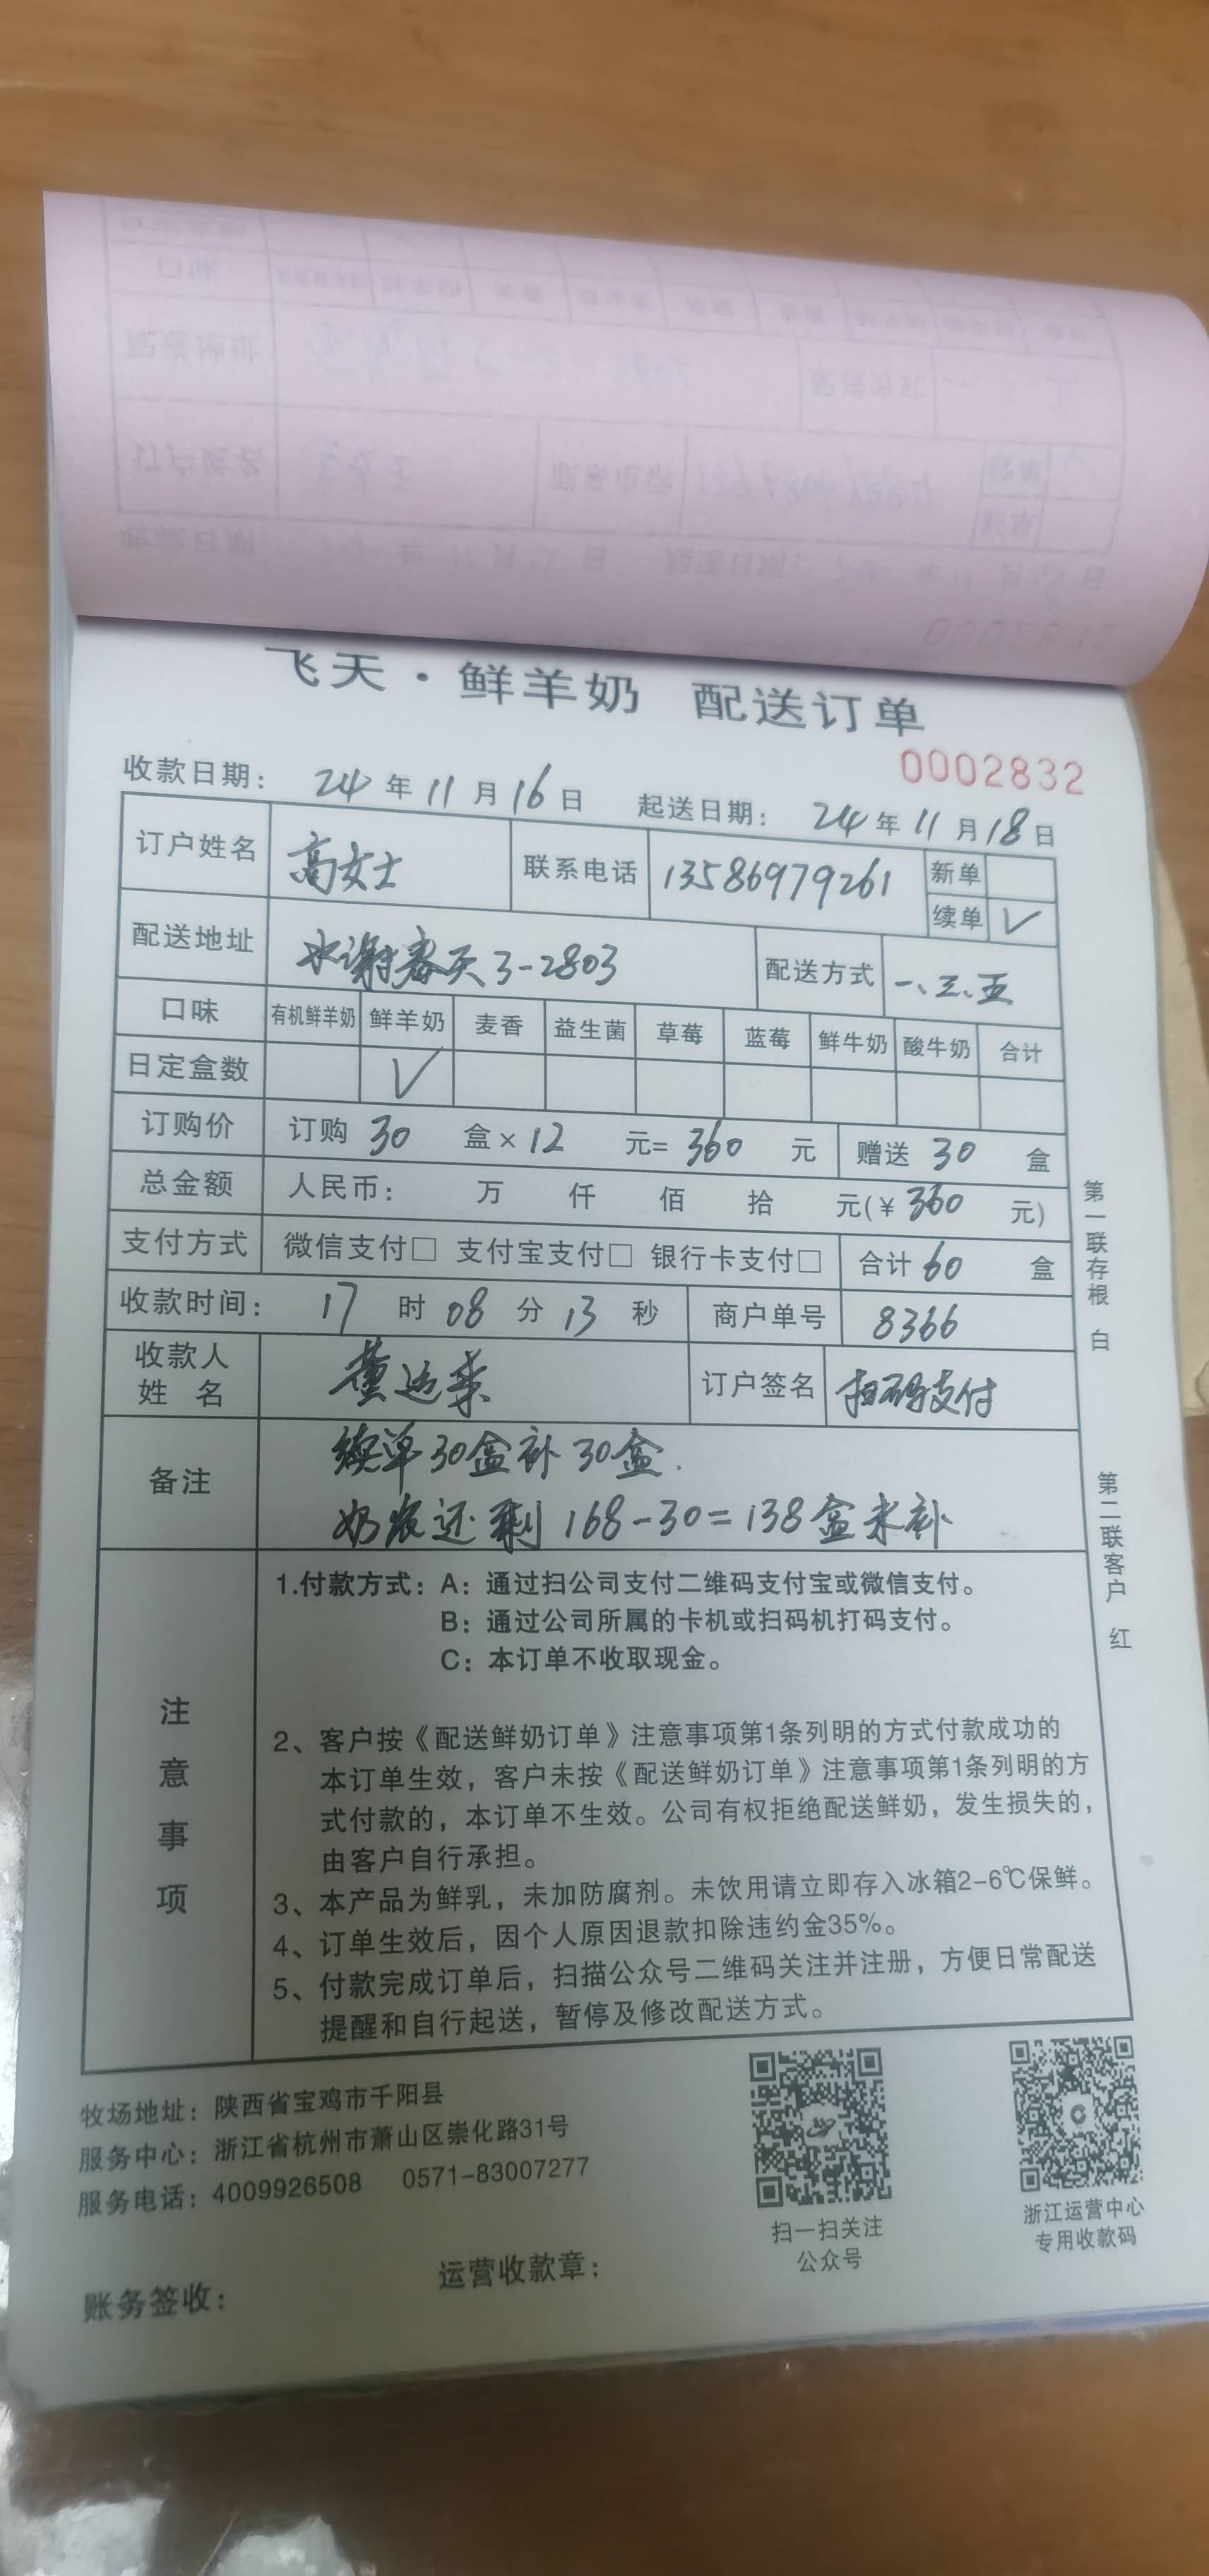 飞天·鲜羊奶 配送订单
0002832
收款日期: 24年11月16日 起送日期: 24年11月18日
订户姓名 高女士 联系电话 13586979261 新单
续单 √
配送地址 水谢春天3-2803 配送方式 一、三、五
口味 有机鲜羊奶 鲜羊奶 麦香 益生菌 草莓 蓝莓 鲜牛奶 酸牛奶 合计
日定盒数 √
订购价 订购 30 盒×12 元=360 元 赠送 30 盒
总金额 人民币: 万 仟 佰 拾 元(¥360 元)
支付方式 微信支付□ 支付宝支付□ 银行卡支付□ 合计 60 盒
收款时间: 17 时 08 分 13 秒 商户单号 8366
收款人姓名 董运 订户签名 扫码支付
备注 续单30盒补30盒.
奶农还剩168-30=138盒未补
注意事项
1.付款方式:A:通过扫公司支付二维码支付宝或微信支付。
B:通过公司所属的卡机或扫码机打码支付。
C:本订单不收取现金。
2、客户按《配送鲜奶订单》注意事项第1条列明的方式付款成功的
本订单生效,客户未按《配送鲜奶订单》注意事项第1条列明的方
式付款的,本订单不生效。公司有权拒绝配送鲜奶,发生损失的,
由客户自行承担。
3、本产品为鲜乳,未加防腐剂。未饮用请立即存入冰箱2-6℃保鲜。
4、订单生效后,因个人原因退款扣除违约金35%。
5、付款完成订单后,扫描公众号二维码关注并注册,方便日常配送
提醒和自行起送,暂停及修改配送方式。
第一联存根 白
第二联客户 红
牧场地址:陕西省宝鸡市千阳县
服务中心:浙江省杭州市萧山区崇化路31号
服务电话:4009926508 0571-83007277
扫一扫关注
公众号
浙江运营中心
专用收款码
账务签收: 运营收款章: